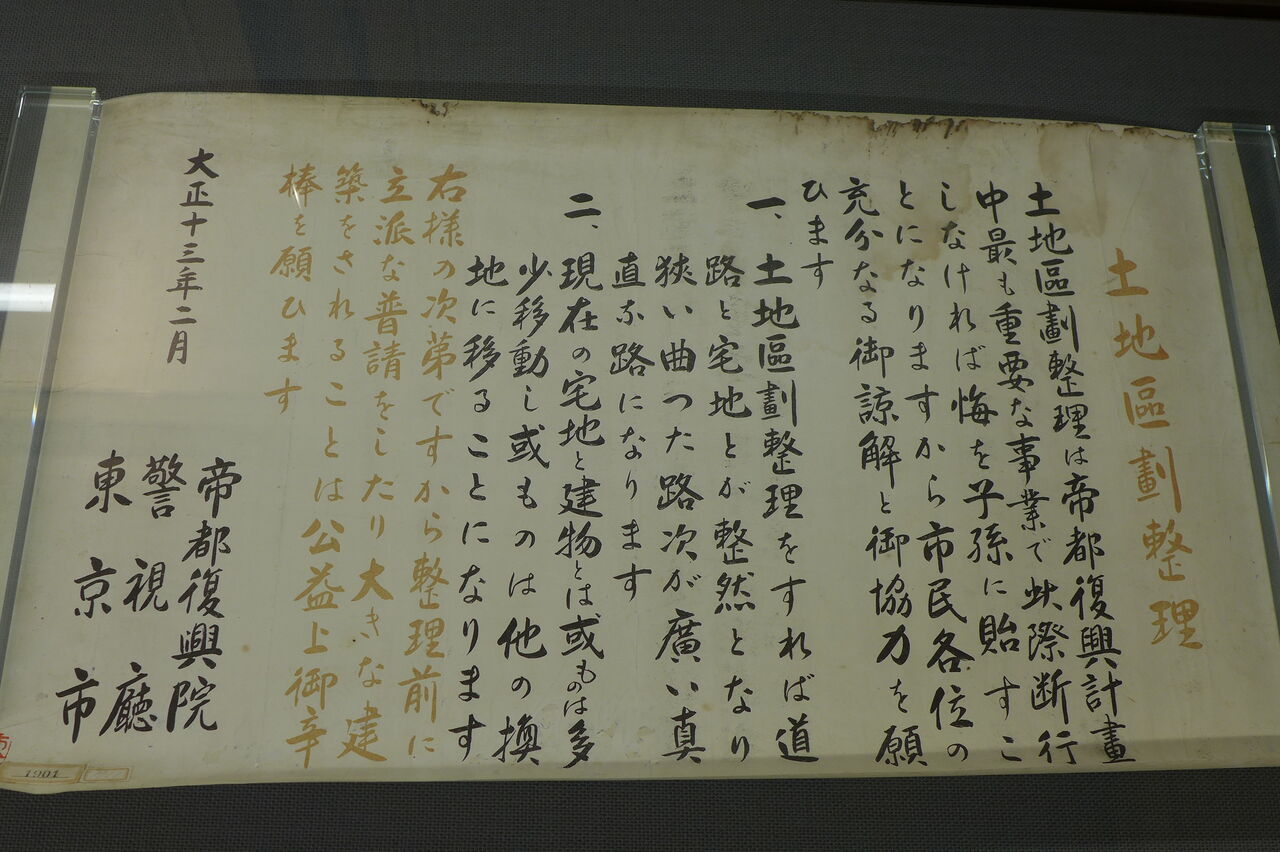 土地區劃整理
土地區劃整理は帝都復興計畫
中最も重要な事業で此際断行
しなければ悔を子孫に貽すこ
とになりますから市民各位の
充分なる御諒解と御協力を願
ひます
一、土地區劃整理をすれば道
路と宅地とが整然となり
狹い曲つた路次が廣い真
直な路になります
二、現在の宅地と建物とは或ものは多
少移動し或ものは他の換
地に移ることになります
右様の次第ですから整理前に
立派な普請をしたり大きな建
築をされることは公益上御辛
棒を願ひます
大正十三年二月
帝都復興院
警視廳
東京市
1901